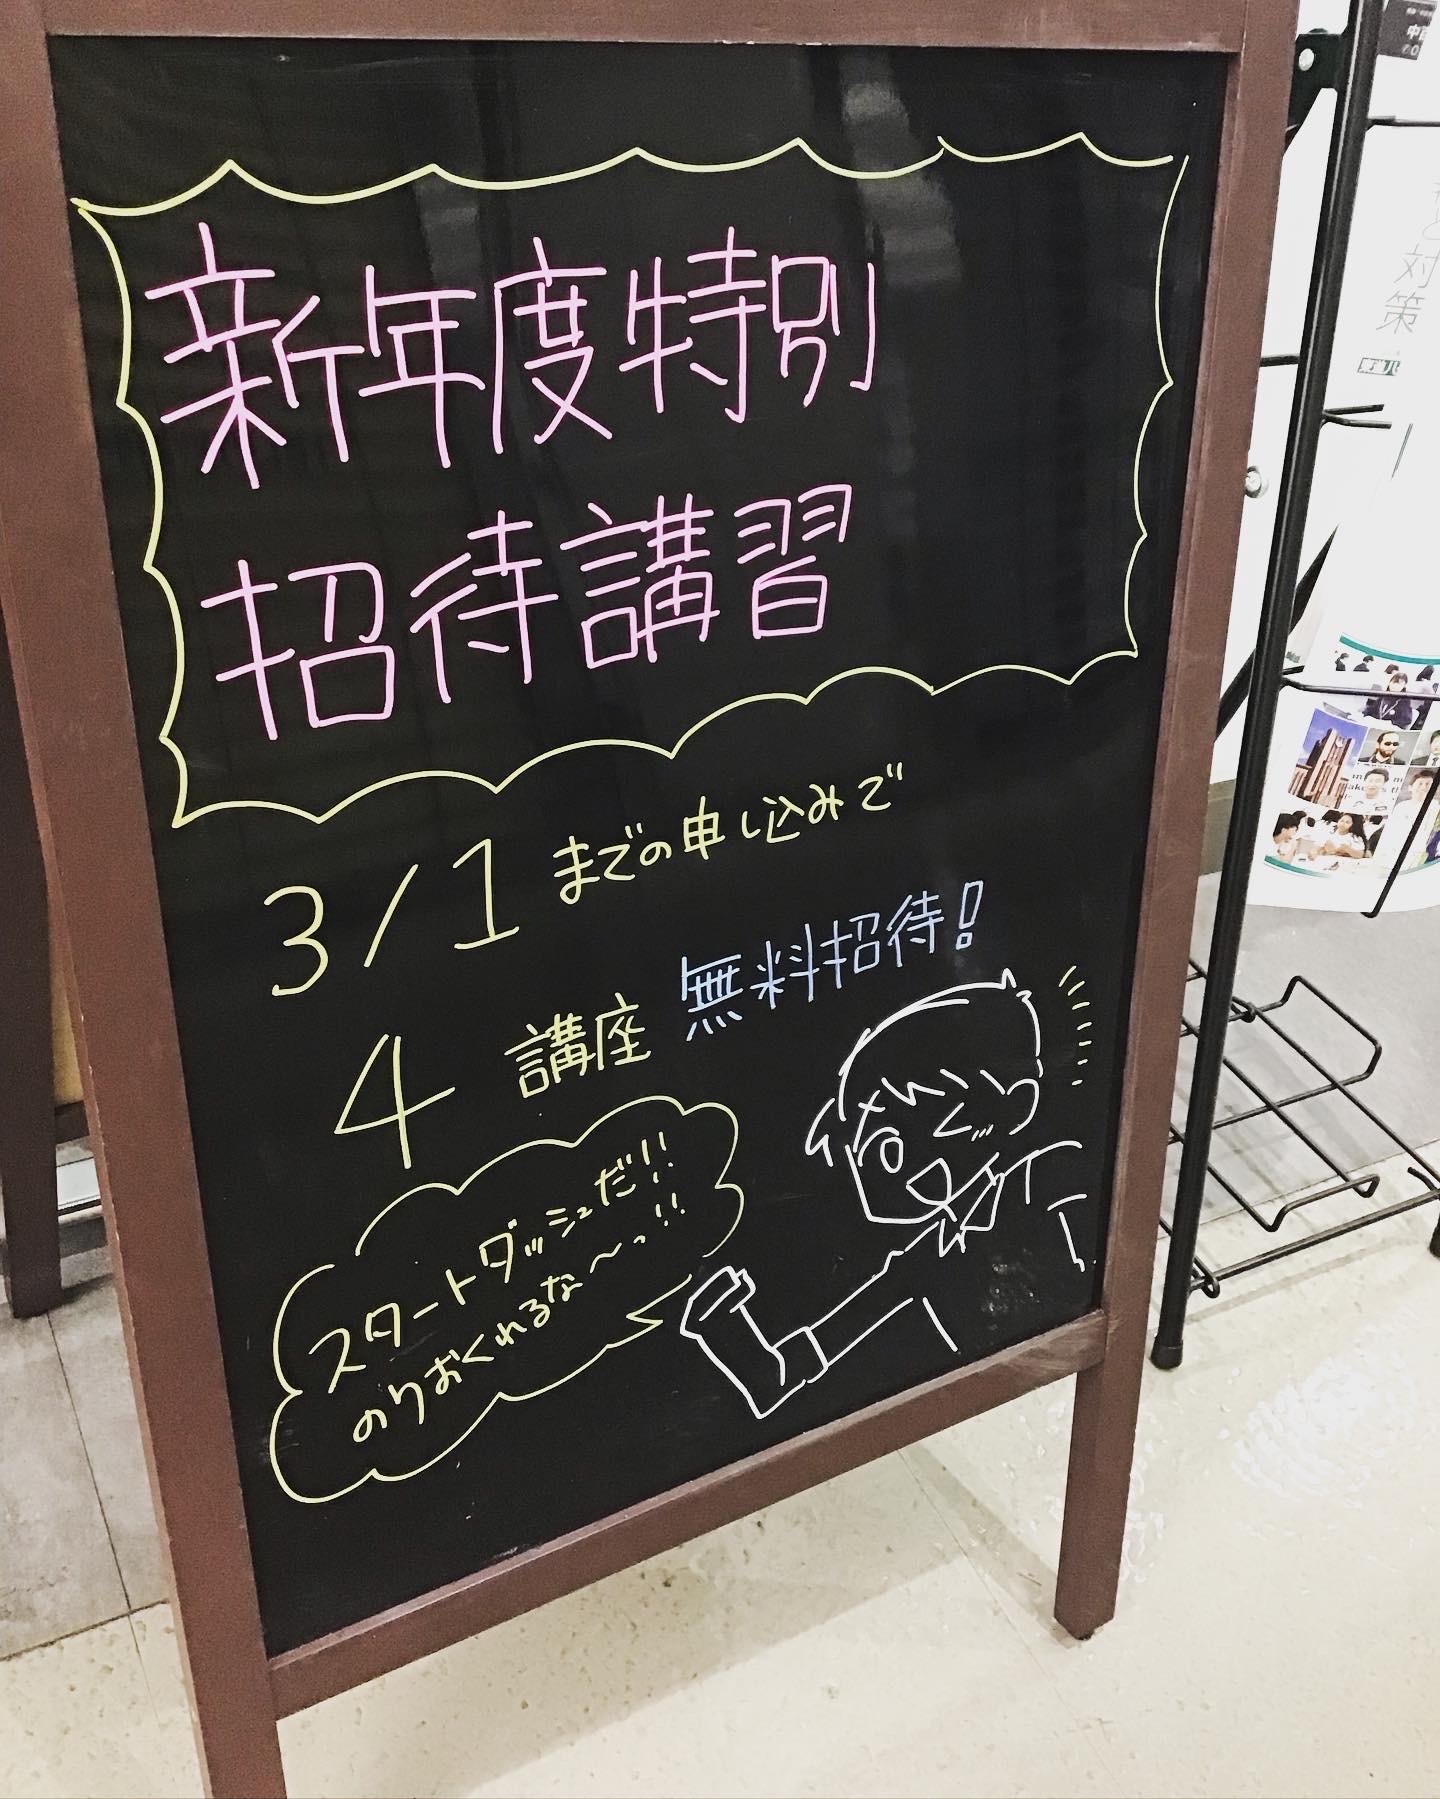 新年度特別
招待講習
3/1までの申し込みで
4講座 無料招待!
スタートダッシュだ!!
のりおくれるな〜っ!!
対策